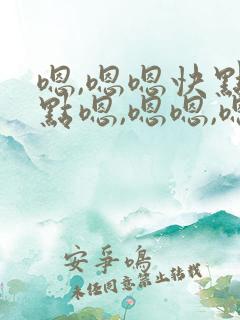 嗯,嗯嗯快點
點嗯,嗯嗯,嗯
安爭鳴
未经同意禁止转载